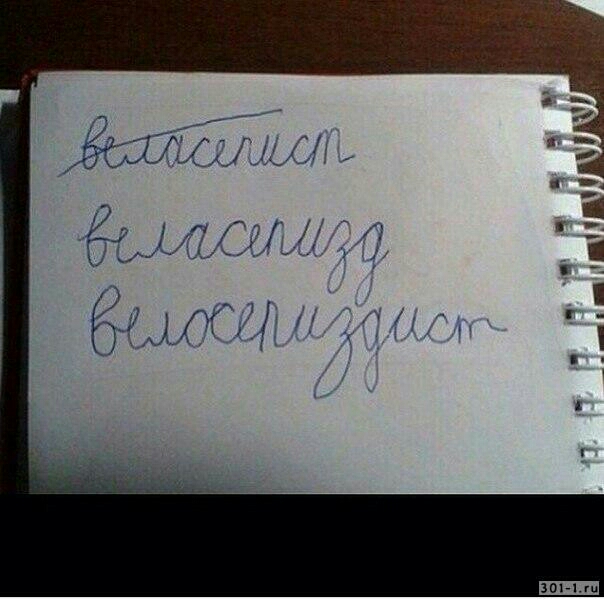 веласепист
веласепизд
велосепиздист
301-1.ru